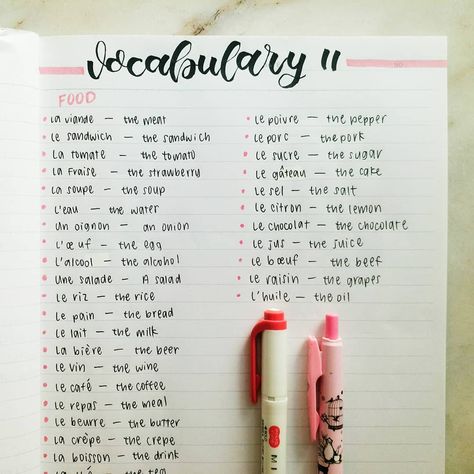 vocabulary 11
FOOD
La viande – the meat
Le sandwich – the sandwich
La tomate – the tomato
La fraise – the strawberry
La soupe – the soup
L'eau – the water
Un oignon – an onion
L'œuf – the egg
L'alcool – the alcohol
Une salade – A salad
Le riz – the rice
Le pain – the bread
Le lait – the milk
La bière – the beer
Le vin – the wine
Le café – the coffee
Le repas – the meal
Le beurre – the butter
La crêpe – the crepe
La boisson – the drink
Le poivre – the pepper
Le porc – the pork
Le sucre – the sugar
Le gâteau – the cake
Le sel – the salt
Le citron – the lemon
Le chocolat – the chocolate
Le jus – the juice
Le bœuf – the beef
Le raisin – the grapes
L'huile – the oil
MI